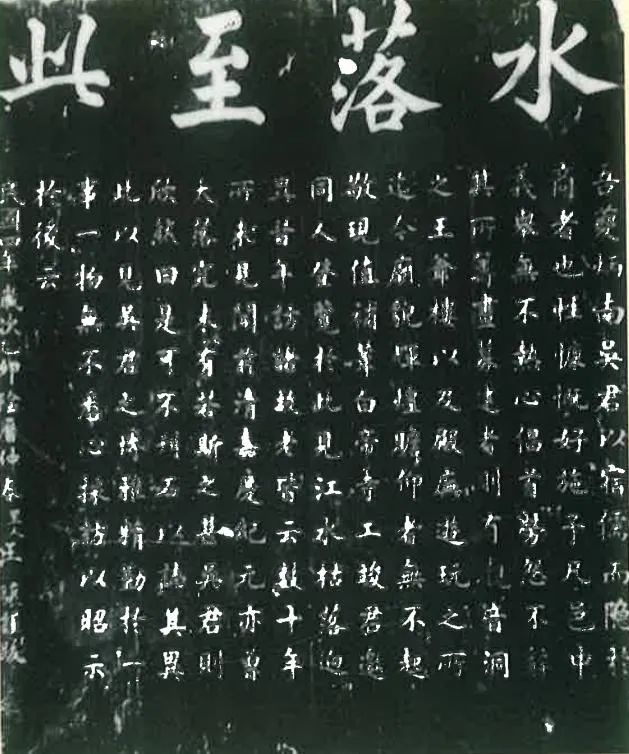 水落至此
吾夔炳南吳君以宿儒而隱於
商者也性慷慨好施予凡邑中
義舉無不熱心倡首勞怨不辭
其所籌畫募建者則有音洞
之王爺樓以及殿廡遊玩之所
迄今廟貌輝煌瞻仰者無不起
敬現值補葺白帝寺工竣君邀
同人登覽於此見江水枯落迥
異昔年訪諸故老皆云數十年
所未見聞前清嘉慶紀元亦曾
大落究未有若斯之甚吳君則
欣然曰是可不刻石以誌其異
此以見吳君之雅精勤於一
事一物無不悉心採訪以昭示
於後云
民國四年歲次乙卯陰曆仲春里人王跋